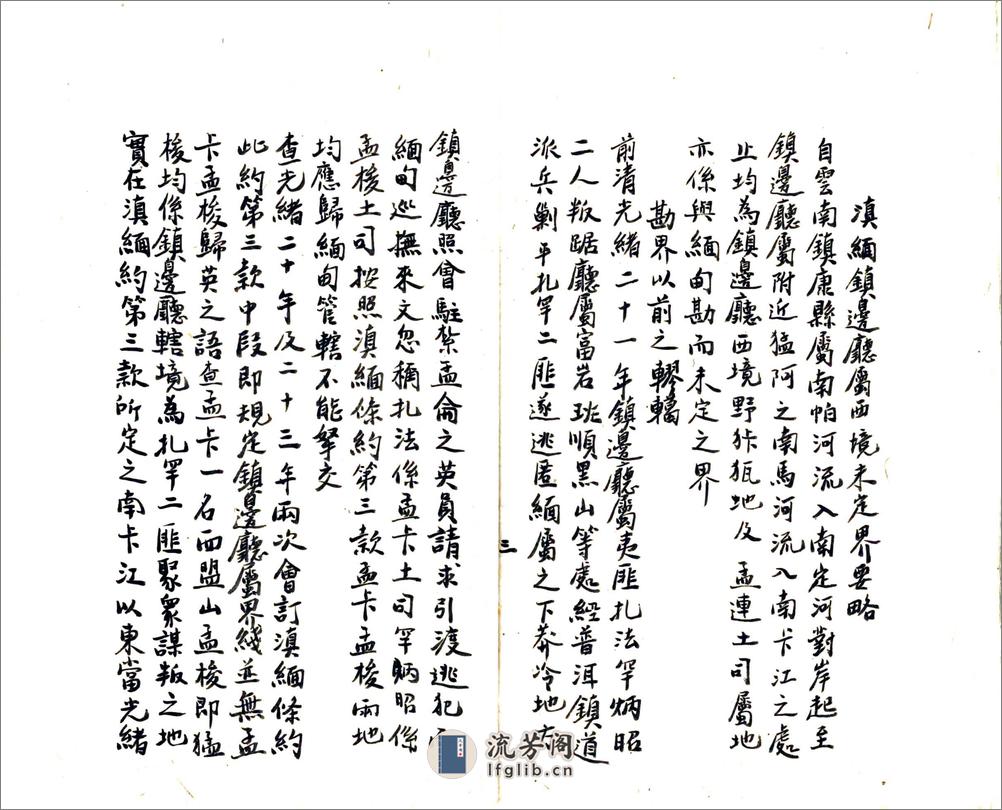 滇緬鎮邊廳屬西境未定界要略
自雲南鎮康縣屬南帕河流入南定河對岸起至
鎮邊廳屬附近猛阿之南馬河流入南卡江之處
止均為鎮邊廳西境野佧瓶地及孟連土司屬地
亦係與緬甸勘而未定之界
勘界以前之轇轕
前清光緒二十一年鎮邊廳屬夷匪扎法罕炳昭
二人叛踞廳屬富岩班順黑山等處經普洱鎮道
派兵剿平扎罕二匪遂逃匿緬屬之下莽冷地方
三
鎮邊廳照會駐紮孟侖之英員請求引渡逃犯而
緬甸巡撫來文忽稱扎法係孟卡土司罕炳昭係
孟梭土司按照滇緬條約第三款孟卡孟梭兩地
均應歸緬甸管轄不能拏交
查光緒二十年及二十三年兩次會訂滇緬條約
此約第三款中段即規定鎮邊廳屬界綫並無孟
卡孟梭歸英之語查孟卡一名西盟山孟梭即猛
梭均係鎮邊廳轄境為扎罕二匪聚眾謀叛之地
實在滇緬約第三款所定之南卡江以東當光緒
流芳阁
lfglib.cn